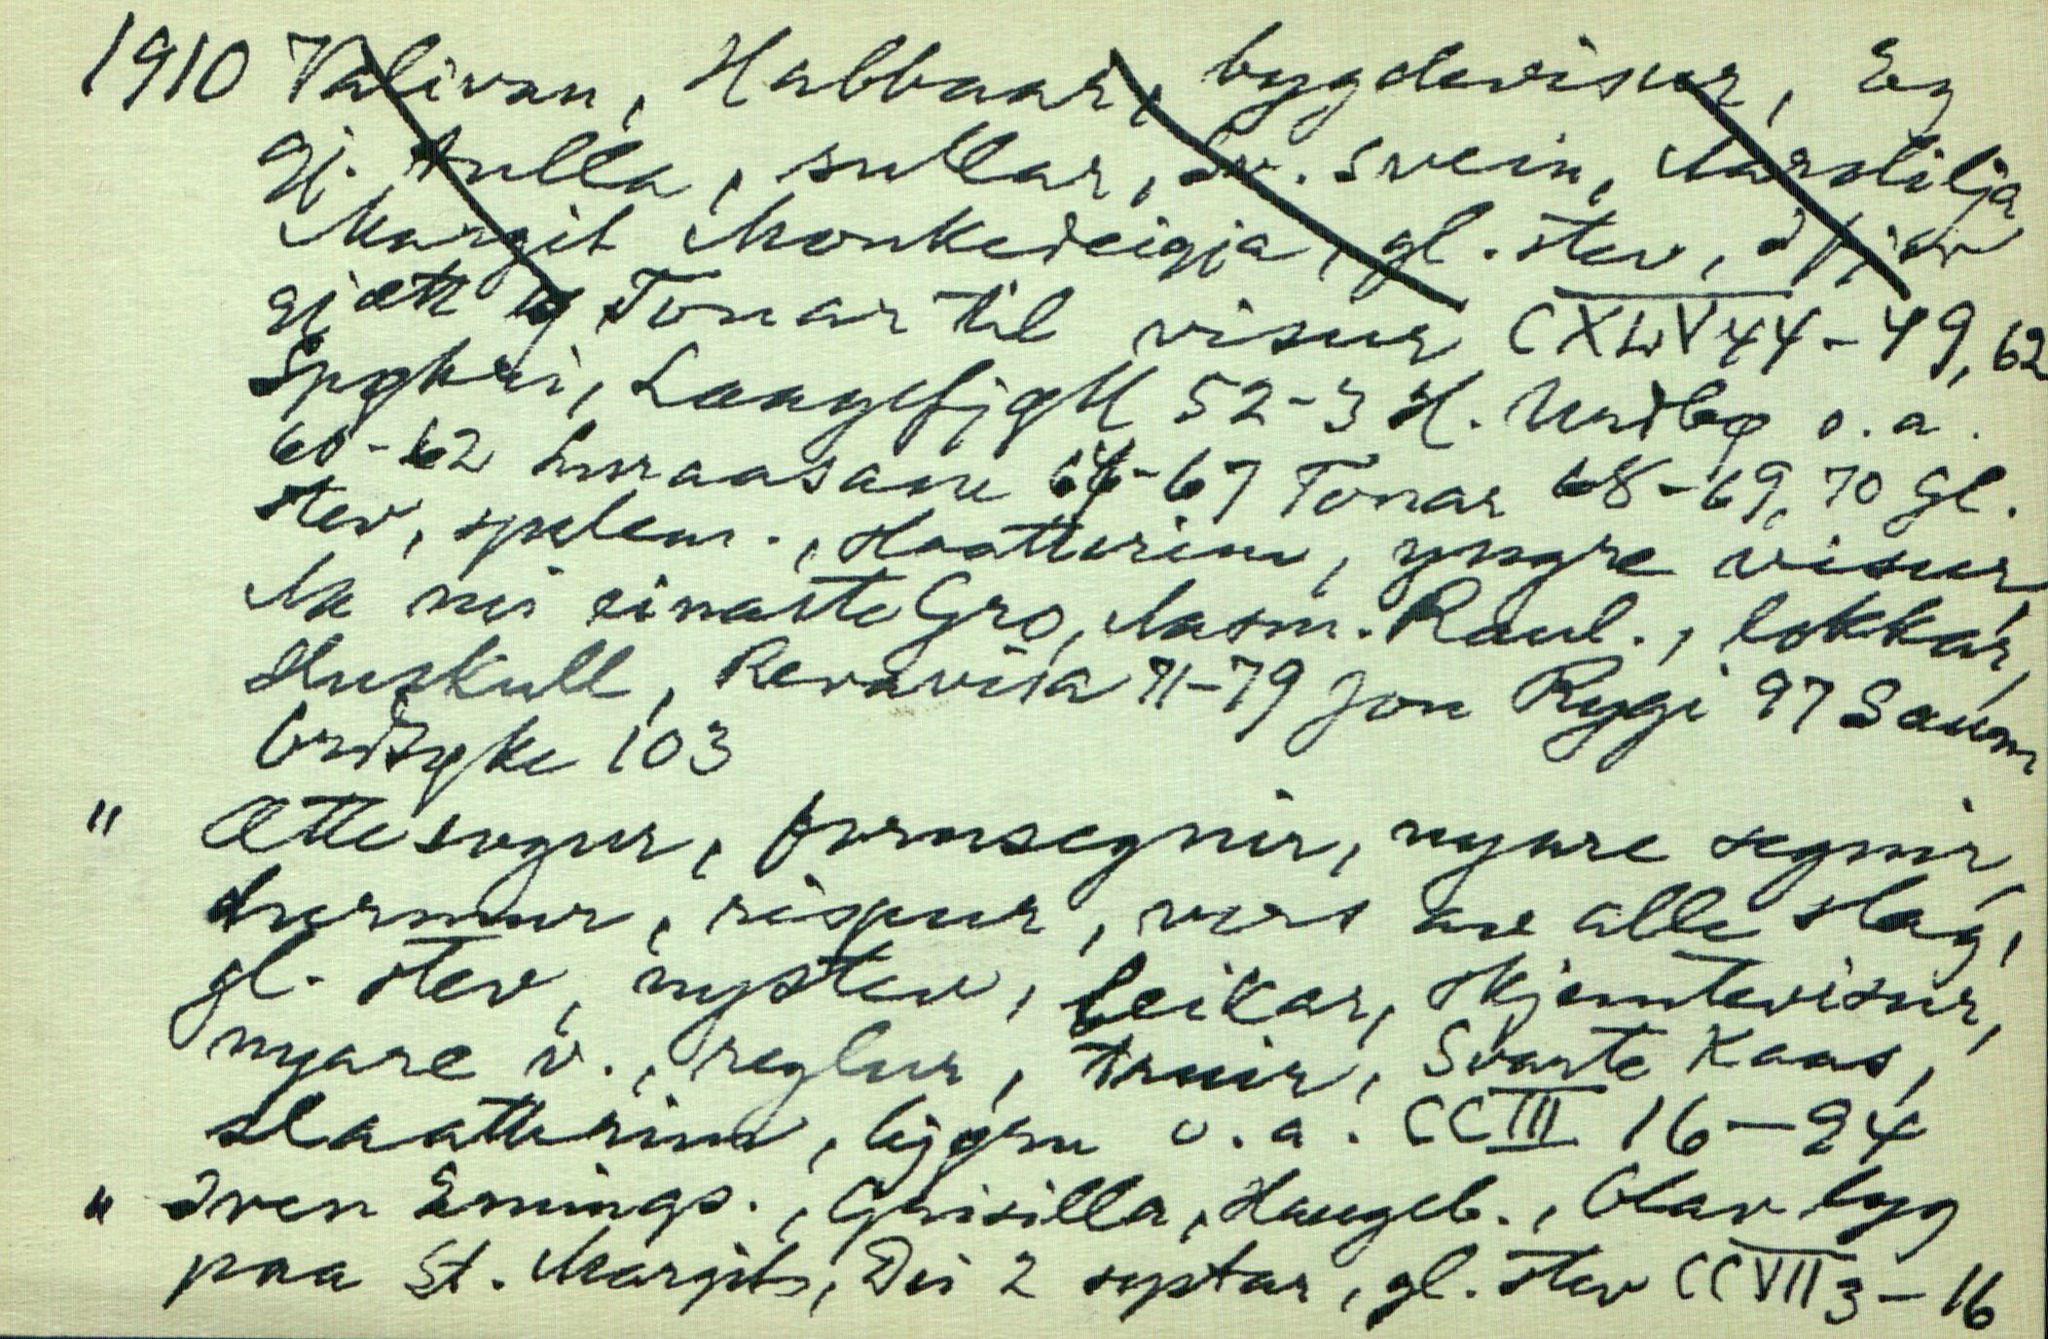 1910 Valivan, Habbaar, bygdevisur, Eg
gj. tulla, sullar, Sv. Svein, Maarstilja
Margit Monkedeigja, gl. stev,
gjætt og Tonar til visur CXLV 44-49, 62
Spøkri, Laangefjøll 52-3 H. Urdbø o.a.
60-62 Luraasane 66-67 Tonar 68-69, 70 Gl.
stev, spelem., slaatterim, yngre visur,
Aa mi einaste Gro, Aasm. Raul., lokkar,
Huskull, Revavisa 71-79 Jon Rygi 97 Saum
brityke 103
" Ættesogur, fornsegnir, nyare segnir,
hermur, rispur, vers av alle slag,
gl. stev, nystev, leikar, skjemtevisur,
nyare v., reglur, truir, Svarte Kaas,
slaatterim, bjørn o.a. CCIII 16-24
" Iven Ernings., Grisilla, Haugeb., Olav lyg
paa St. Margits, Dei 2 systar, gl. stev CCVII 3-16